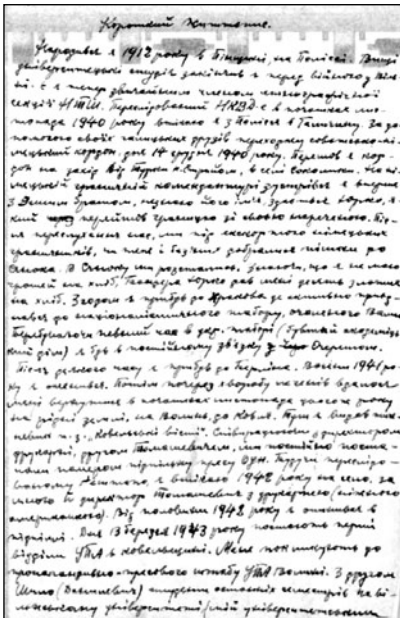 Короткий життєпис.
Народився я 1912 року в Пінщині, на Поліссі. Вищі
університетські студії закінчив я перед війною у Віль
ні. Є я тепер звичайним членом етнографічної
секції НТШ. Переслідований НКВД-є в початках лис-
топада 1940 року втікаю я з Полісся в Галичину. За до-
помогою своїх галицьких друзів переходжу совєтсько-ні-
мецький кордон, дня 14 грудня 1940 року. Перейшов я кор-
дон на захід від Турки н-Стрийом, в селі
мецькій граничній комендантурі зустрівся я вперше
з Вашим братом, не знаю його ім'я, здається Юрко, я-
кий перейшов границю зі своєю нареченою. Піс-
ля переслухання нас, ми під ескортою німецьких
граничників, на возі і їздили добралися пішки до
Сянока. В Сяноку ми розсталися. Знаючи, що я не маю
грошей на хліб, Бандера Юрко дав мені десять злотих
на хліб. Згодом я прибув до Кракова де активно приєд-
нався до націоналістичного табору, очоленого Вами.
Перебуваючи певний час в укр. таборі (бувший академіч-
кий дім) я був в постійному зв'язку з
Після деякого часу я прибув до Берліна. Восени 1941 ро-
ку я Потім через хворобу легенів вдалося
мені вернутися в початках листопада цього ж року
на рідні землі, на Волинь, до Ковля. Там я видав тиж-
невик п. з. „Ковельські вісті". Співпрацюючи з директором
друкарні, другом Томашевичем, ми постійно поста-
чали папером підпільну пресу ОУН. Будучи переслідо-
ваному гештапо, я втікаю 1942 року на село, за
мною й директор Томашевич з друкарнею (пізніше
). Від половини 1942 року я опинився в
підпіллі. Дня 13 березня 1943 року постають перші
відділи УПА в Ковельщині. Мене покликують до
пропагандивно-пресового штабу УПА Волині. З другом
Шило (Данилевич) студент останніх семестрів на ві-
ленському університеті (мій університетський